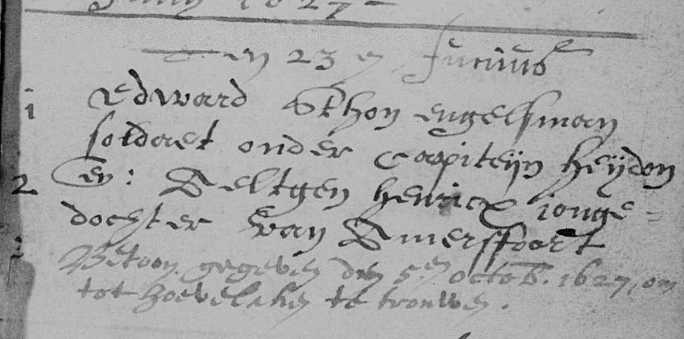 1627
Den 23en Junius
1 Edward Sthon engelsman
soldaet onder Capiteijn heijdon
2 en: Aeltgen henricx jonge=
dochter van Amersfoort
Betoon gegeven den 5en octob. 1627, om
tot hoevelaken te trouwen.